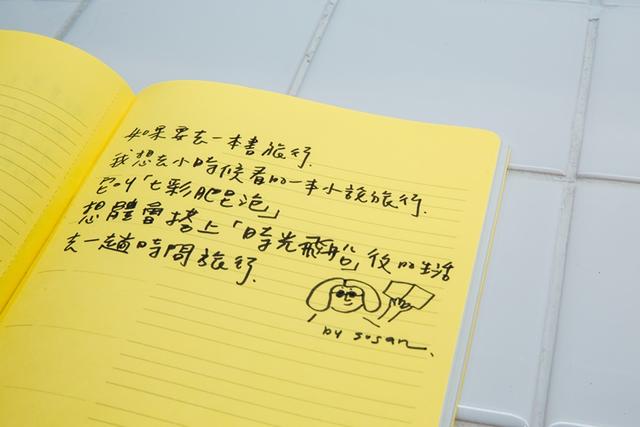 如果要去一本書旅行.
我想去小時候看的一本小說旅行.
它叫「七彩肥皂泡」
想體會搭上「時光飛船」後的生活
去一趟時間旅行.
by susan.